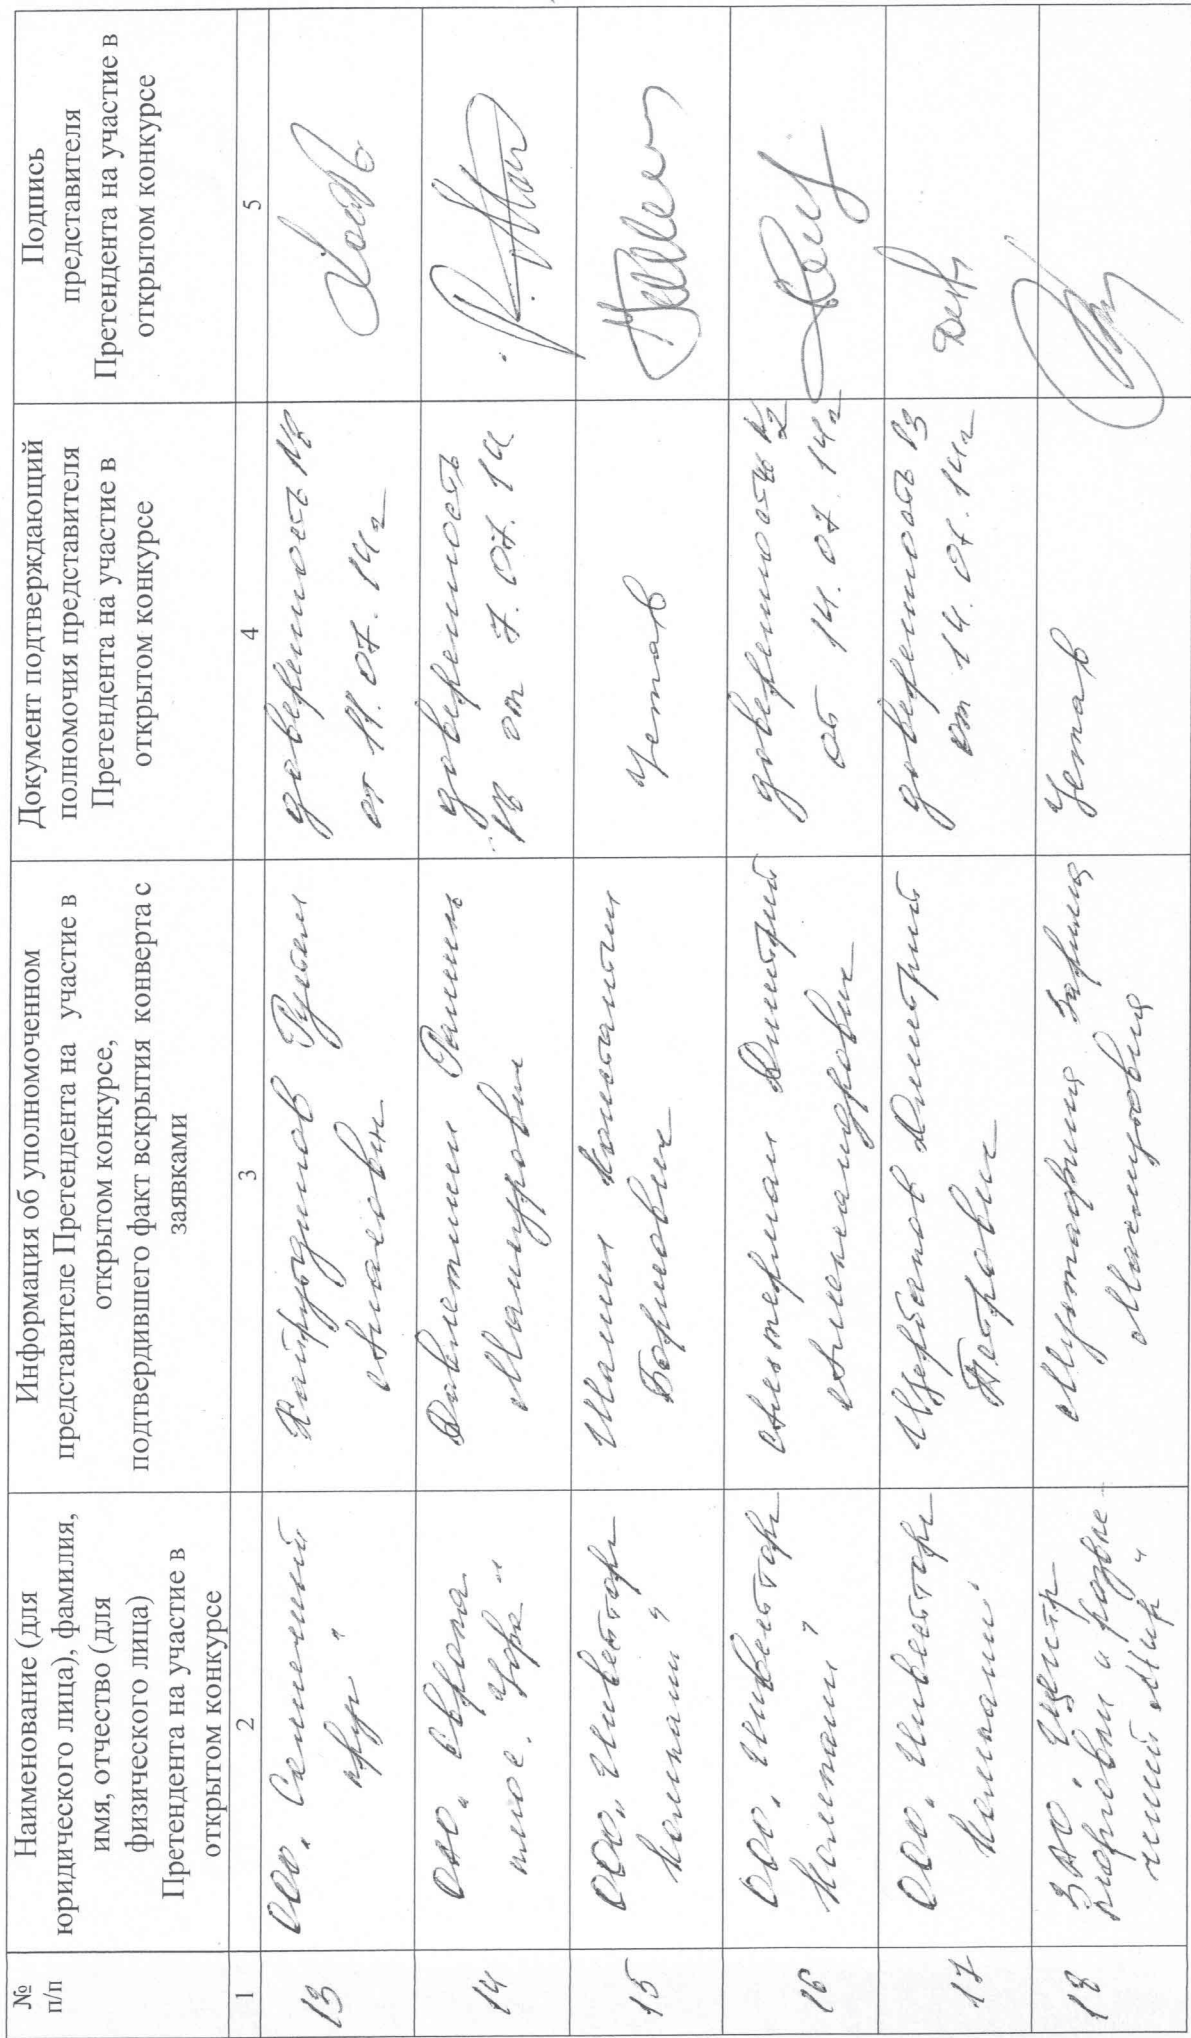 №
п/п
Наименование (для
юридического лица), фамилия,
имя, отчество (для
физического лица)
Претендента на участие в
открытом конкурсе
Информация об уполномоченном
представителе Претендента на участие в
открытом конкурсе,
подтвердившего факт вскрытия конверта с
заявками
Документ подтверждающий
полномочия представителя
Претендента на участие в
открытом конкурсе
Подпись
представителя
Претендента на участие в
открытом конкурсе
1
2
3
4
5
13
ООО „Солнечный
круг"
Хайрутдинов
Анасович
доверенность
от 11.07.14г
14
Давлетшин Рамиль
Мансурович
доверенность
от 7.07.14
15
ООО „Инвестторг
компани"
Шамин Константин
Борисович
Устав
16
ООО „Инвестторг
компани"
Альтерман Дмитрий
Александрович
доверенность №2
от 14.07.14г
17
ООО „Инвестторг
компани"
Щербаков Дмитрий
Петрович
доверенность
от 14.07.14г
18
ЗАО „Центр
торговли и развле-
чений „Мир"
Мустафина Зарина
Устав